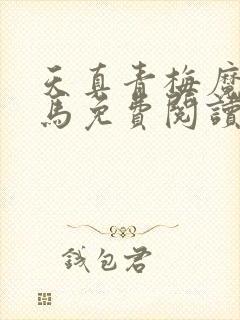 天真青梅魔
馬免費閱讀
錢包君